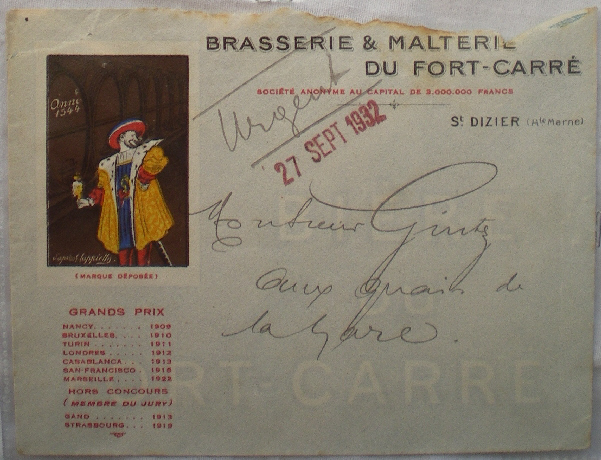 BRASSERIE & MALTERIE
DU FORT-CARRÉ
SOCIÉTÉ ANONYME AU CAPITAL DE 2.000.000 FRANCS
Sᵗ DIZIER (Hᵗᵉ Marne)
Urgent
27 SEPT 1932
Anno
1544
(MARQUE DÉPOSÉE)
Monsieur Gintz
aux quais de
la Gare.
GRANDS PRIX
NANCY....... 1909
BRUXELLES.... 1910
TURIN....... 1911
LONDRES..... 1912
CASABLANCA... 1913
SAN-FRANCISCO.. 1915
MARSEILLE.... 1922
HORS CONCOURS
(MEMBRE DU JURY)
GAND....... 1913
STRASBOURG... 1919
BIÈRE
DU
FORT CARRÉ